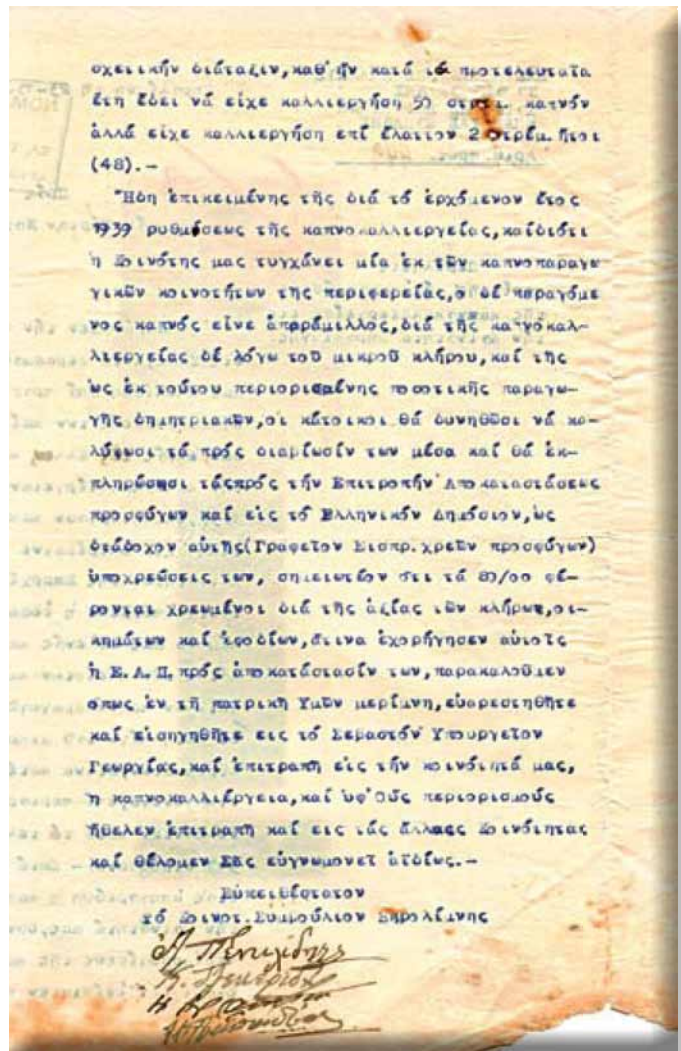 σχετικήν διάταξιν,καθ' ήν κατά τά προτελευταΐα
έτη έδει νά είχε καλλιεργήση 50 στρέμ. καπνόν
άλλά είχε καλλιεργήση επί έλαττον 2 στρέμ. ήτοι
(48).-
Ήδη έπικειμένης τής διά τό έρχόμενον έτος
1939 ρυθμίσεως τής καπνοκαλλιεργείας,καίδιότι
ή Κοινότης μας τυγχάνει μία έκ τών καπνοπαραγω
γικών κοινοτήτων της περιφερείας,ο δέ παραγόμε
νος καπνός είνε άπαράμιλλος,διά τής καπνοκαλ-
λιεργείας δέ λόγω τοϋ μικροϋ κλήρου,καί τής
ώς έκ τούτου περιορισμένης ποσοτικής παραγω-
γής δημητριακών,οι κάτοικοι θά δυνηθώσι νά κα-
λύψωσι τά πρός διαβίωσίν των μέσα καί θά έκ-
πληρώσωσι τάςπρός τήν Επιτροπήν Αποκαταστάσεως
προσφύγων καί είς τό Ελληνικόν Δημόσιον,ώς
διάδοχον αύτής(Γραφεΐον Εισπρ.χρεών προσφύγων)
ύποχρεώσεις των, σημειωτέον ότι τά 80/00 φέ-
ρονται χρεωμένοι διά τής άξίας τών κλήρων,οι-
κημάτων καί έφοδίων,άτινα έχορήγησεν αύτοϊς
ή Ε.Α.Π. πρός άποκατάστασίν των,παρακαλοϋμεν
όπως έν τή πατρική Υμών μερίμνη,εύαρεστηθήτε
καί είσηγηθήτε εις τό Σεβαστόν Υπουργεΐον
Γεωργίας,καί έπιτραπή είς τήν κοινότητά μας,
η καπνοκαλλιέργεια,καί ύφ'ούς περιορισμούς
ήθελεν έπιτραπή καί εις τάς άλλας Κοινότητας
καί θέλομεν Σάς εύγνωμονεΐ άϊδίως.-
Εύπειθέστατον
τό Κοινοτ.Συμβούλιον Ξηρολίμνης